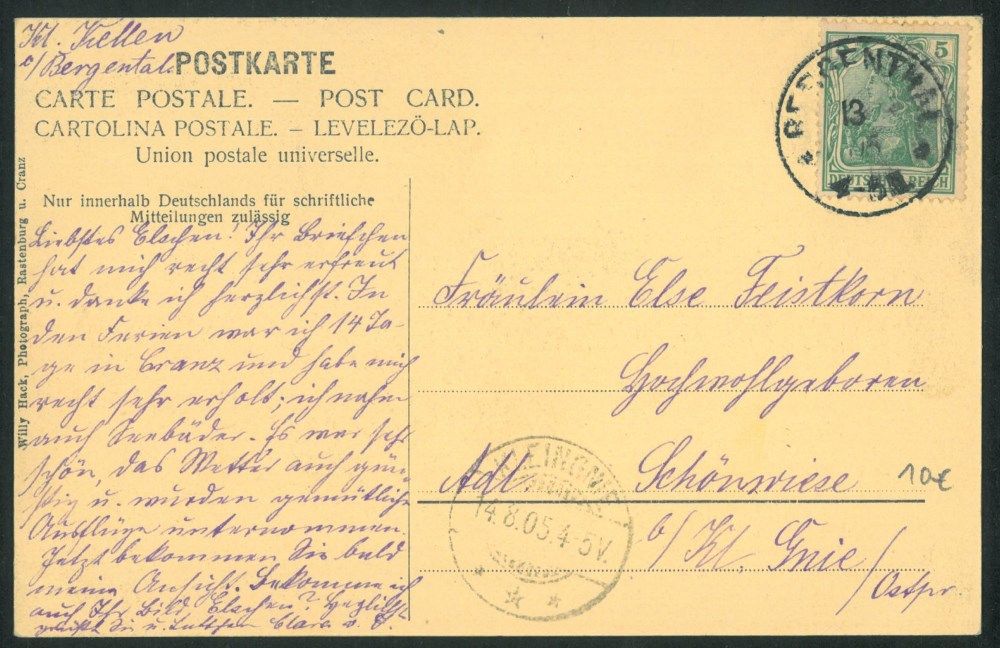 Kl. Kellen
b/Bergental.
POSTKARTE
CARTE POSTALE. — POST CARD.
CARTOLINA POSTALE. – LEVELEZÖ-LAP.
Union postale universelle.
Nur innerhalb Deutschlands für schriftliche
Mitteilungen zulässig
Willy Hack, Photograph, Rastenburg u. Cranz
Liebstes Elschen! Ihr Briefchen
hat mich recht sehr erfreut
u. danke ich herzlichst. In
den Ferien war ich 14 Ta-
ge in Cranz und habe mich
recht sehr erholt; ich nahm
auch Seebäder. Es war sehr
schön, das Wetter auch gün-
stig u. wurden gemütliche
Ausflüge unternommen.
Jetzt bekommen Sie bald
meine Ansicht. Bekomme ich
auch Ihr Bild, Elschen? Herzlichst
grüßt Sie u. Clara v.
5
DEUTSCHES REICH
BERGENTHAL
13
Fräulein Else Feistkorn
Hochwohlgeboren
Adl. Schönwiese
b/Kl. Gnie/
Ostpr.
KLEINGNIE
14.8.05.4-5V.
10€